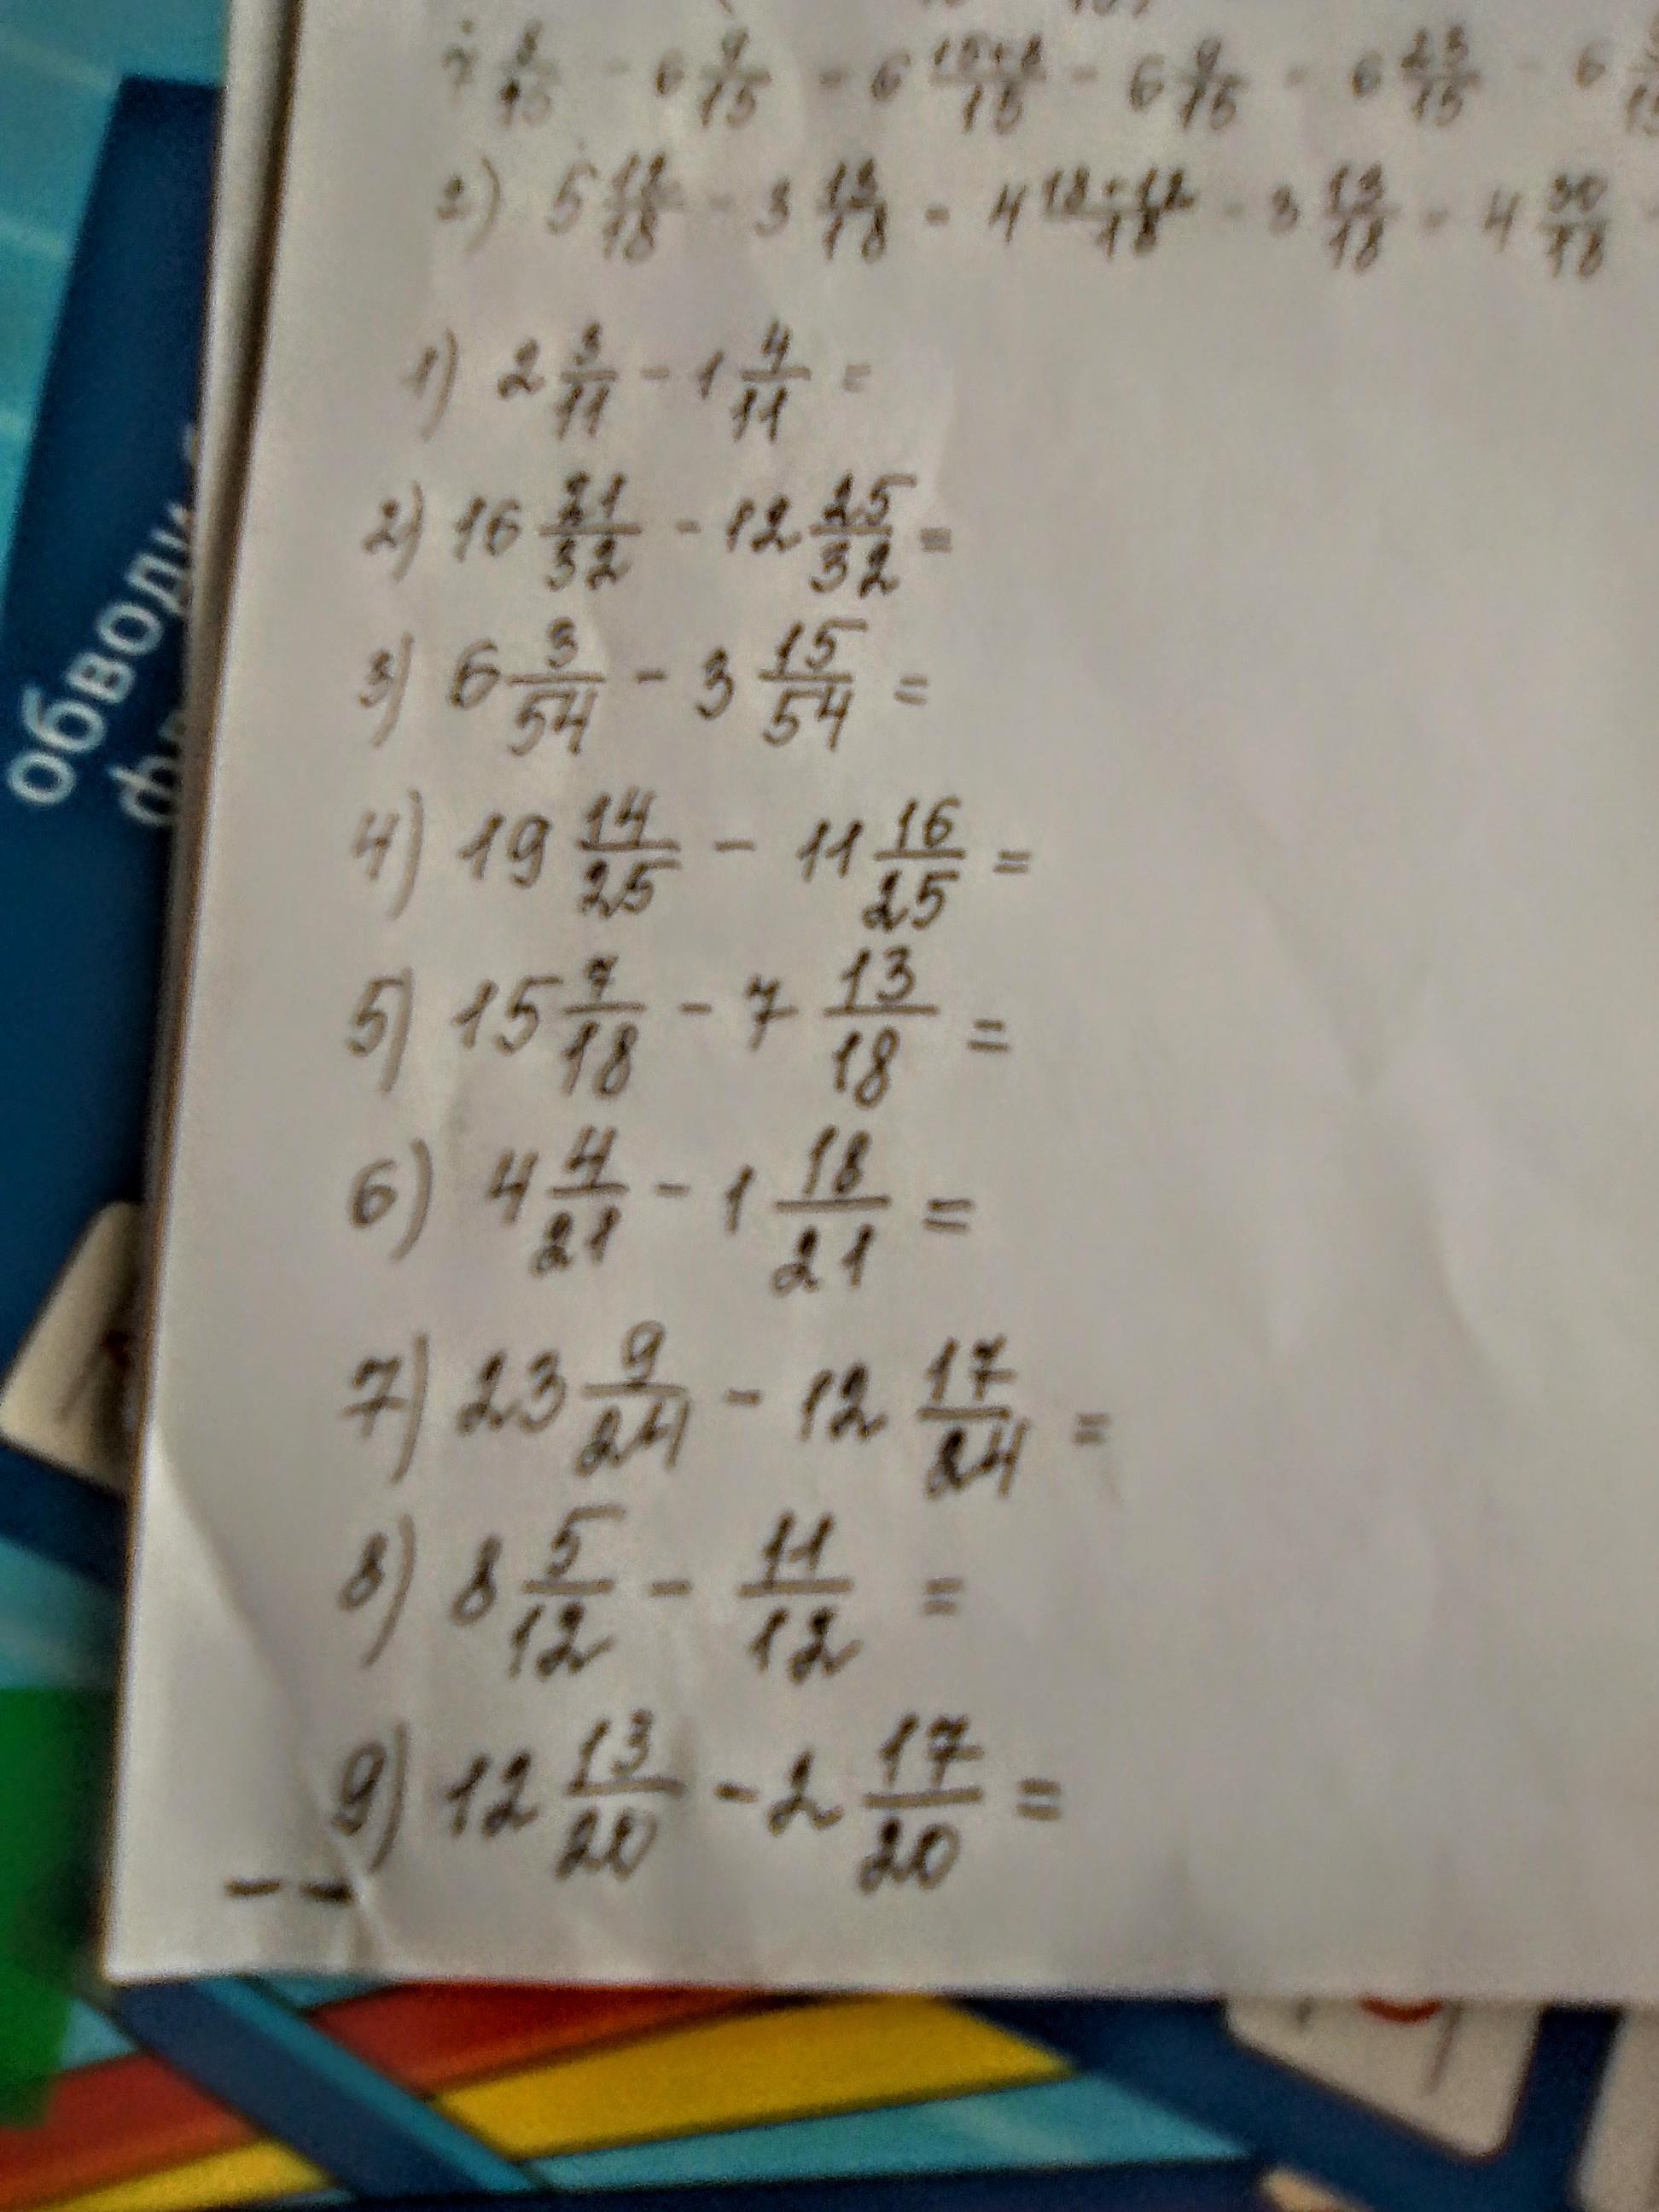 7 8/15 - 6 9/15 = 6 15+8/15 - 6 9/15 = 6 23/15 - 6
2) 5 12/18 - 3 13/18 = 4 18+12/18 - 3 13/18 = 4 30/18 -
1) 2 3/11 - 1 4/11 =
2) 16 21/32 - 12 25/32 =
3) 6 3/54 - 3 15/54 =
4) 19 14/25 - 11 16/25 =
5) 15 7/18 - 7 13/18 =
6) 4 4/21 - 1 18/21 =
7) 23 9/24 - 12 17/24 =
8) 8 5/12 - 11/12 =
9) 12 13/20 - 2 17/20 =
обводи